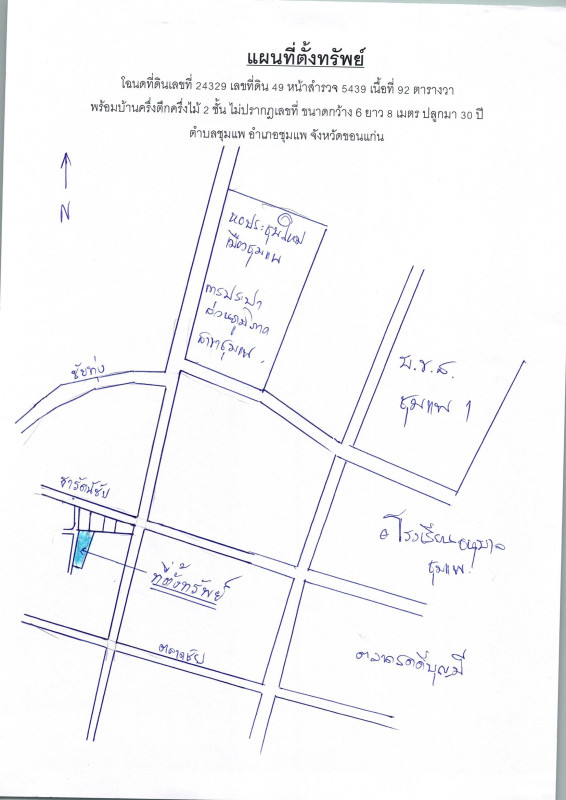 แผนที่ตั้งทรัพย์
โฉนดที่ดินเลขที่ 24329 เลขที่ดิน 49 หน้าสำรวจ 5439 เนื้อที่ 92 ตารางวา
พร้อมบ้านครึ่งตึกครึ่งไม้ 2 ชั้น ไม่ปรากฏเลขที่ ขนาดกว้าง 6 ยาว 8 เมตร ปลูกมา 30 ปี
ตำบลชุมแพ อำเภอชุมแพ จังหวัดขอนแก่น
N
หอประชุมใหม่
เมืองชุมแพ
การประปา
ส่วนภูมิภาค
สาขาชุมแพ
บ.ข.ส.
ชุมแพ 1
โรงเรียนอนุบาล
ชุมแพ
ที่ตั้งทรัพย์